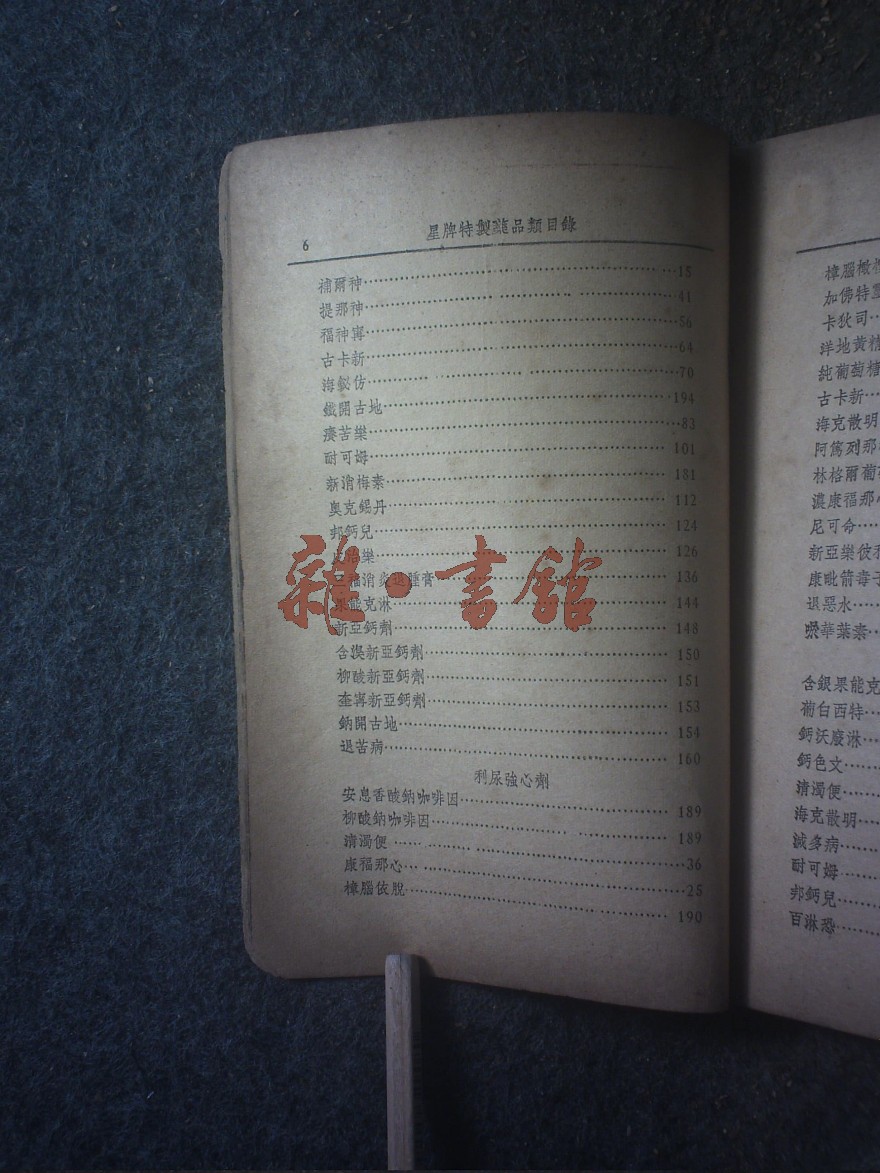 6
星牌特製藥品類目錄
補爾神 15
提那神 41
福神寧 56
古卡新 64
海 仿 70
鐵開古地 194
療苦樂 83
耐可姆 101
新消梅素 181
奧克錫丹 112
邦鈣兒 124
治樂 126
消炎退腫膏 136
果能克淋 144
新亞鈣劑 148
含溴新亞鈣劑 150
柳酸新亞鈣劑 151
奎寧新亞鈣劑 153
鈉開古地 154
退苦病 160
利尿強心劑
安息香酸鈉咖啡因 189
柳酸鈉咖啡因 189
清濁便 36
康福那心 25
樟腦依脫 190
樟腦橄
加佛特
卡狄司
洋地黃精
純葡萄糖
古卡新
海克散明
阿篤列那
林格爾葡
濃康福那心
尼可命
新亞樂彼
康毗箭毒子
退惡水
華葉素
含銀果能克
葡白西特
鈣沃廢淋
鈣色文
清濁便
海克散明
滅多病
耐可姆
邦鈣兒
百淋恐
雜·書館